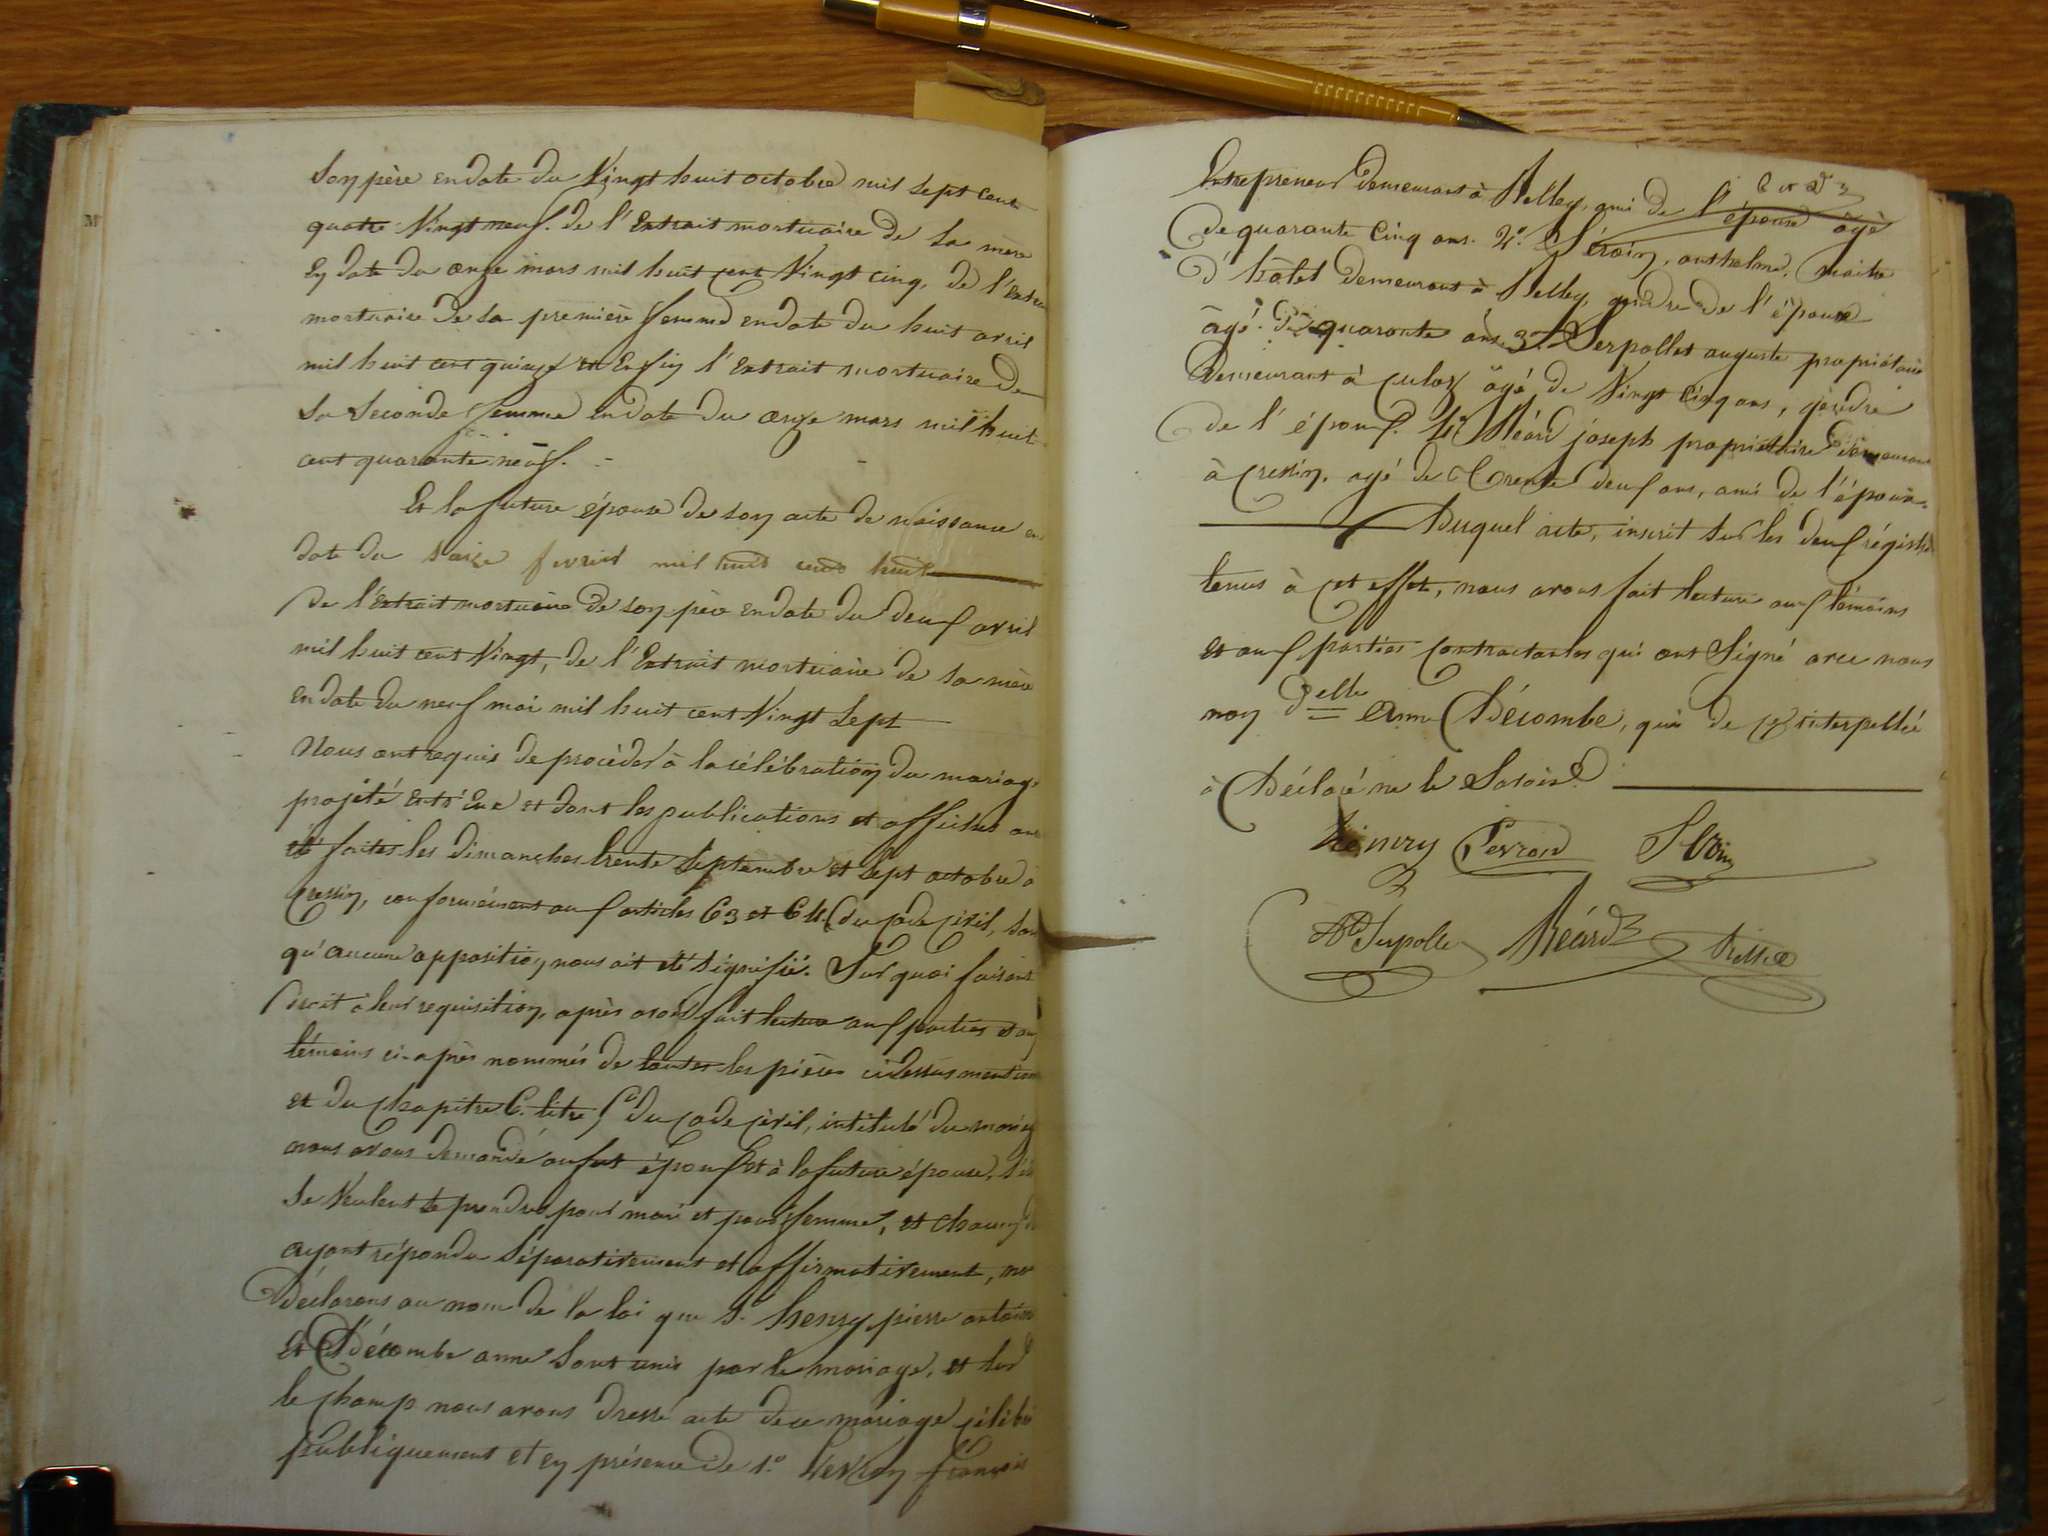 son père en date du Vingt huit octobre mil sept cent
quatre Vingt neuf. de l'Extrait mortuaire de sa mère
En date du onze mars mil huit cent Vingt cinq, de l'Extrait
mortuaire de sa première femme en date du huit avril
mil huit cent quinze et Enfin l'Extrait mortuaire de
sa seconde femme en date du onze mars mil huit
cent quarante neuf.
Et la future épouse de son acte de naissance en
date du seize fevrier mil huit cent huit
de l'Extrait mortuaire de son père en date du deux avril
mil huit cent Vingt, de l'Extrait mortuaire de sa mère
en date du neuf mai mil huit cent Vingt sept
Nous ont requis de procéder à la célébration du mariage
projeté entr'Eux et dont les publications et affiches ont
été faites les dimanches trente septembre et sept octobre à
Cressin, conformément aux articles 63 et 64 du Code Civil, sans
qu'aucune opposition nous ait été signifiée. Sur quoi faisant
droit à leur requisition, après avoir fait lecture aux parties et aux
témoins ci-après nommés de toutes les pièces cidessus mention
et du chapitre 6. titre 5 du Code Civil, intitulé du mariage
nous avons demandé au fut époux et à la future épouse, s'ils
se Veulent se prendre pour mari et pour femme, et chacun d
ayant répondu séparativement et affirmativement, nous
déclarons au nom de la loi que Sr. henry pierre antoine
Et Décombe anne sont unis par le mariage, et sur
le champ nous avons dressé acte de ce mariage célébré
publiquement et en présence de 1.° Perron françois
Entrepreneur demeurant à Belley, ami de l'épouse âgé
de quarante Cinq ans. 2.° Sévoin, anthelme, maitre
d'hôtel demeurant à Belley, gendre de l'épouse
âgé de quarante ans. 3.° Serpollet auguste propriétaire
demeurant à Culoz âgé de Vingt Cinq ans, gendre
de l'époux. 4.° Réard joseph propriétaire demeurant
à Cressin, agé de Trente deux ans, ami de l'époux.
Duquel acte, inscrit sur les deux régistres
tenus à cet effet, nous avons fait lecture aux témoins
et aux parties contractantes qui ont Signé avec nous
non delle anne Décombe, qui de ce interpellée
à Déclaré ne le Savoir.
henry Perron
Ate Serpollet Réard